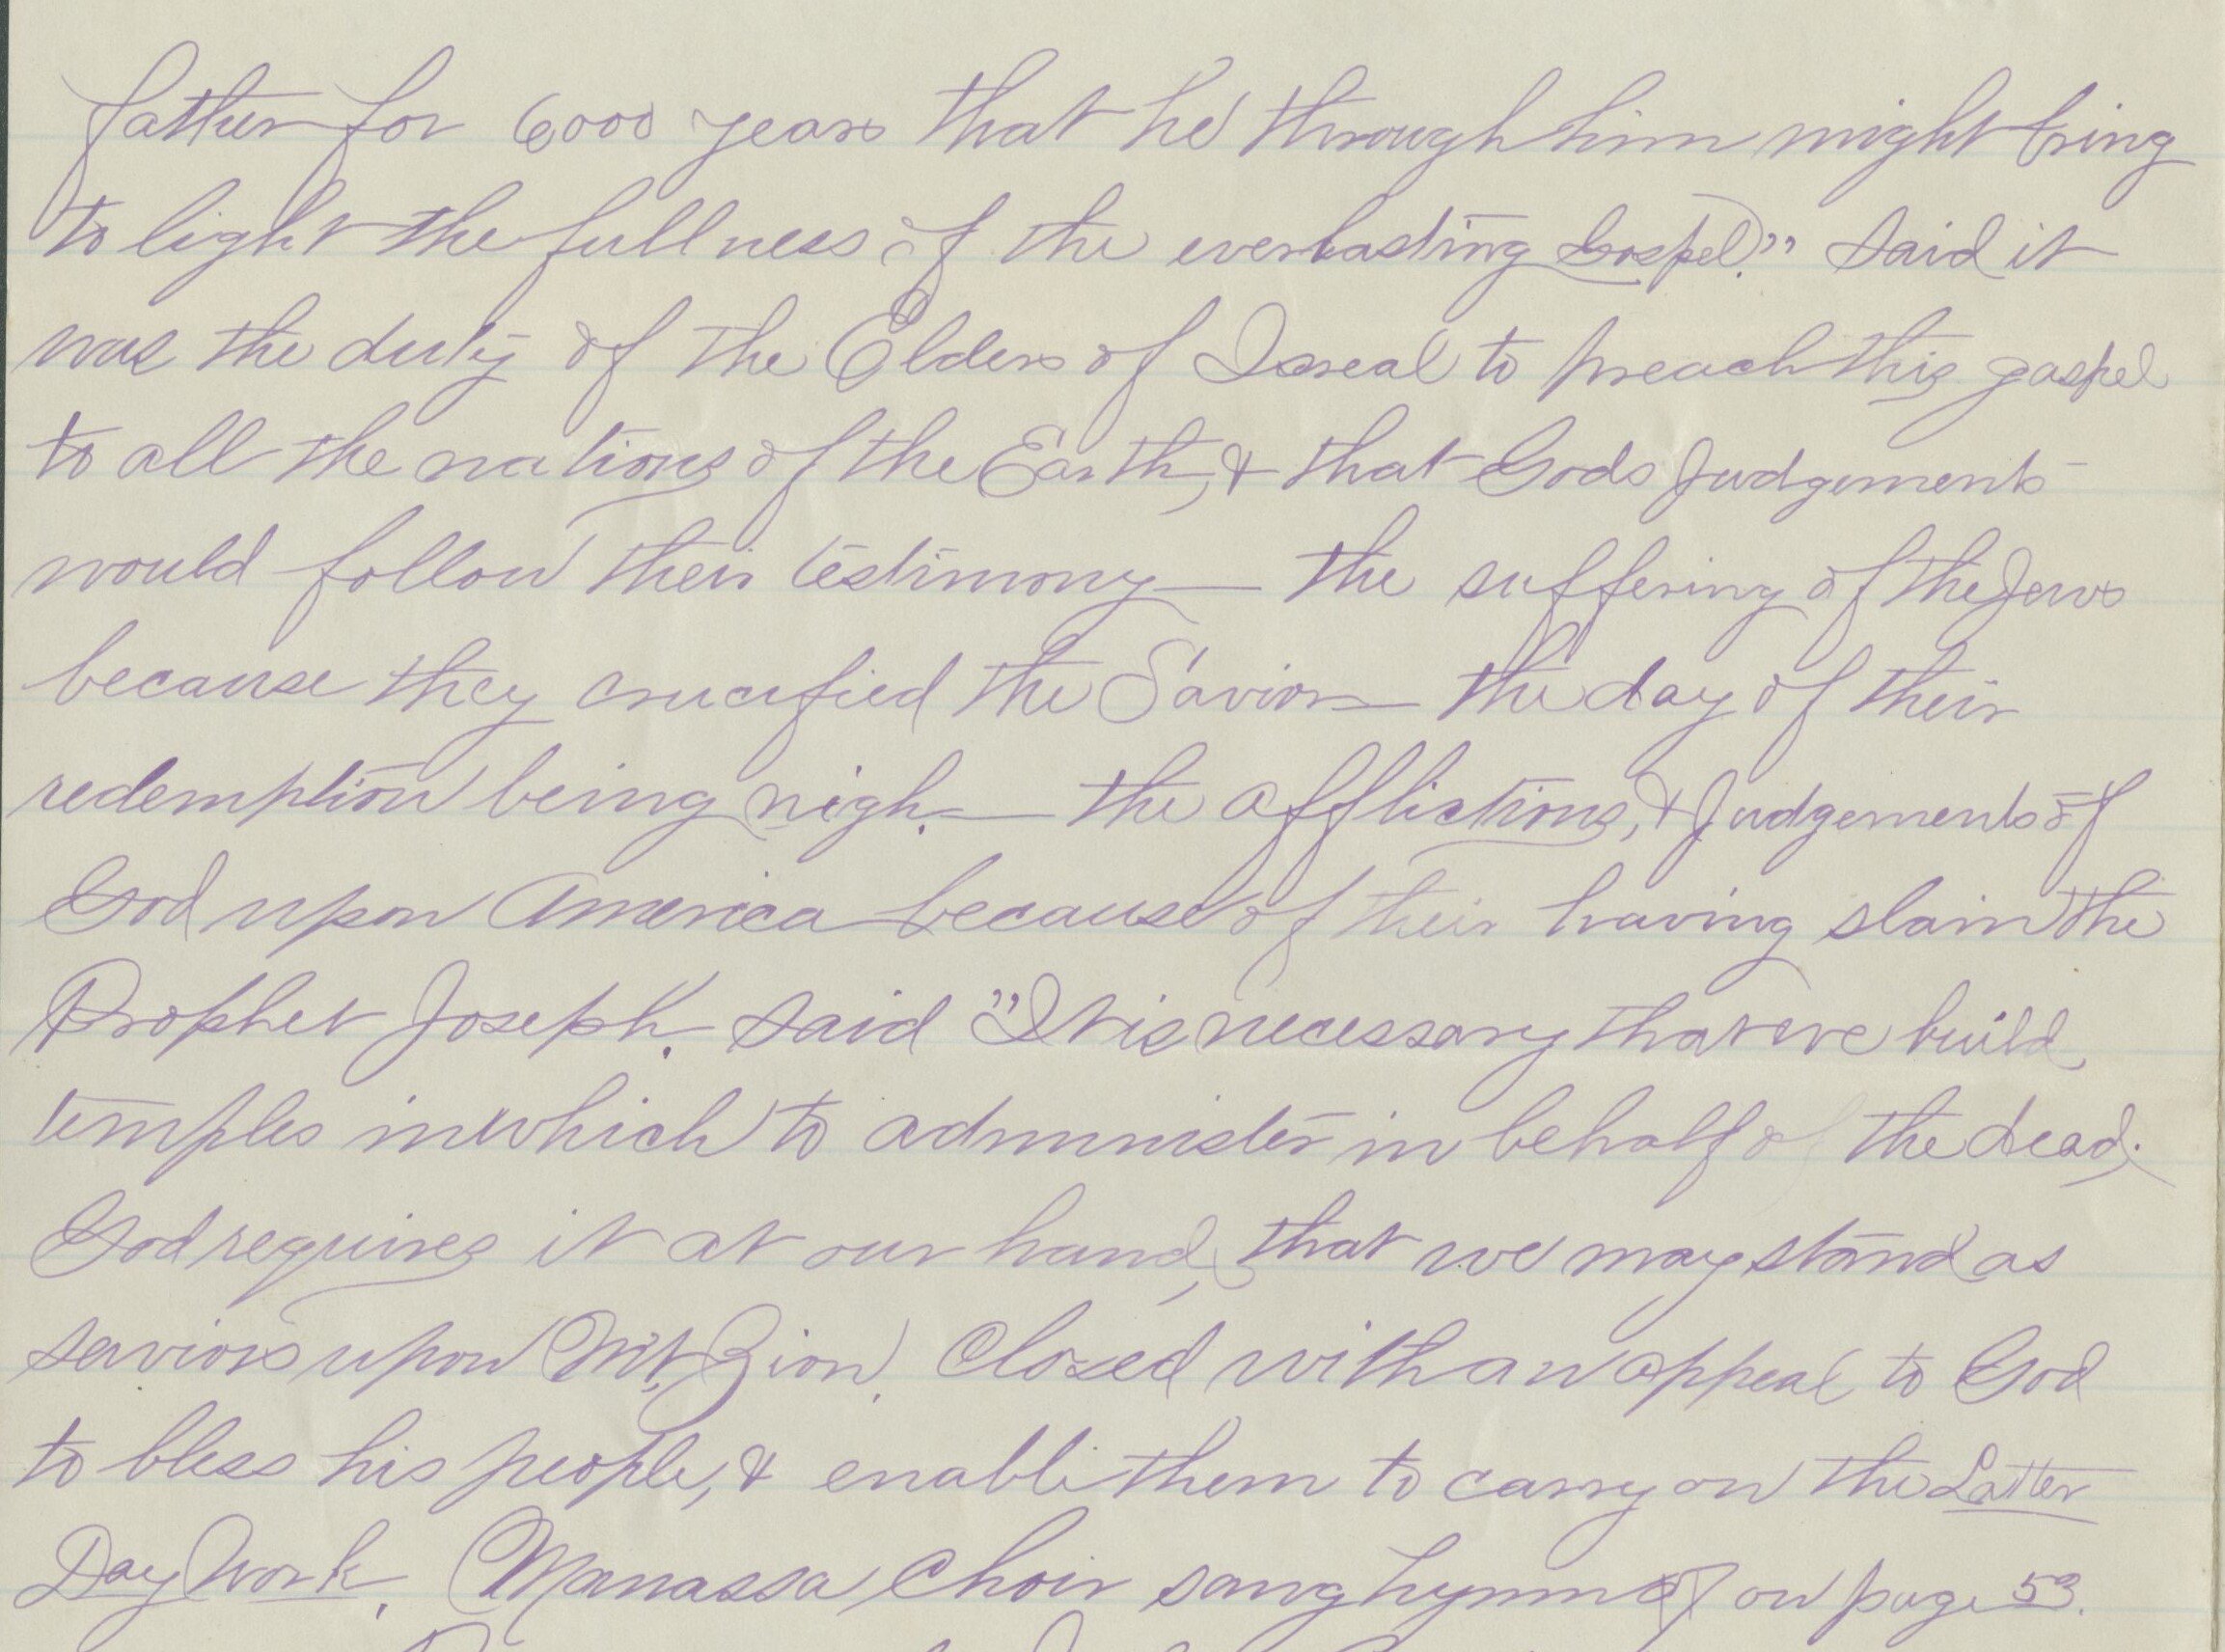 father for 6000 years that he through him might bring
to light the fullness of the everlasting Gospel." Said it
was the duty of the Elders of Isreal to preach this gospel
to all the nations of the Earth, & that Gods Judgements
would follow their testimony — the suffering of the Jews
because they crucified the Savior — the day of their
redemption being nigh. — the afflictions, & Judgements of
God upon America because of their having slain the
Prophet Joseph. Said "It is necessary that we build
temples in which to administer in behalf of the dead.
God requires it at our hand, that we may stand as
saviors upon Mt. Zion. Closed with an appeal to God
to bless his people, & enable them to carry on the Latter
Day Work. Manassa Choir sang hymn on page 53.